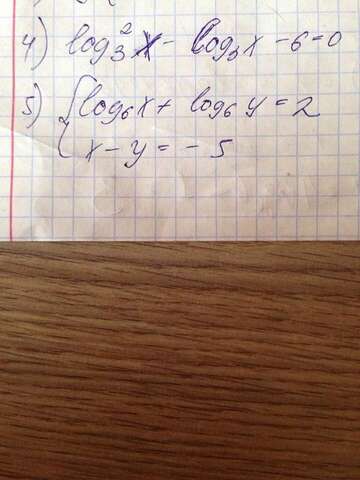 4) log₃²x - log₃x - 6 = 0
5) { log₆x + log₆y = 2
x - y = - 5